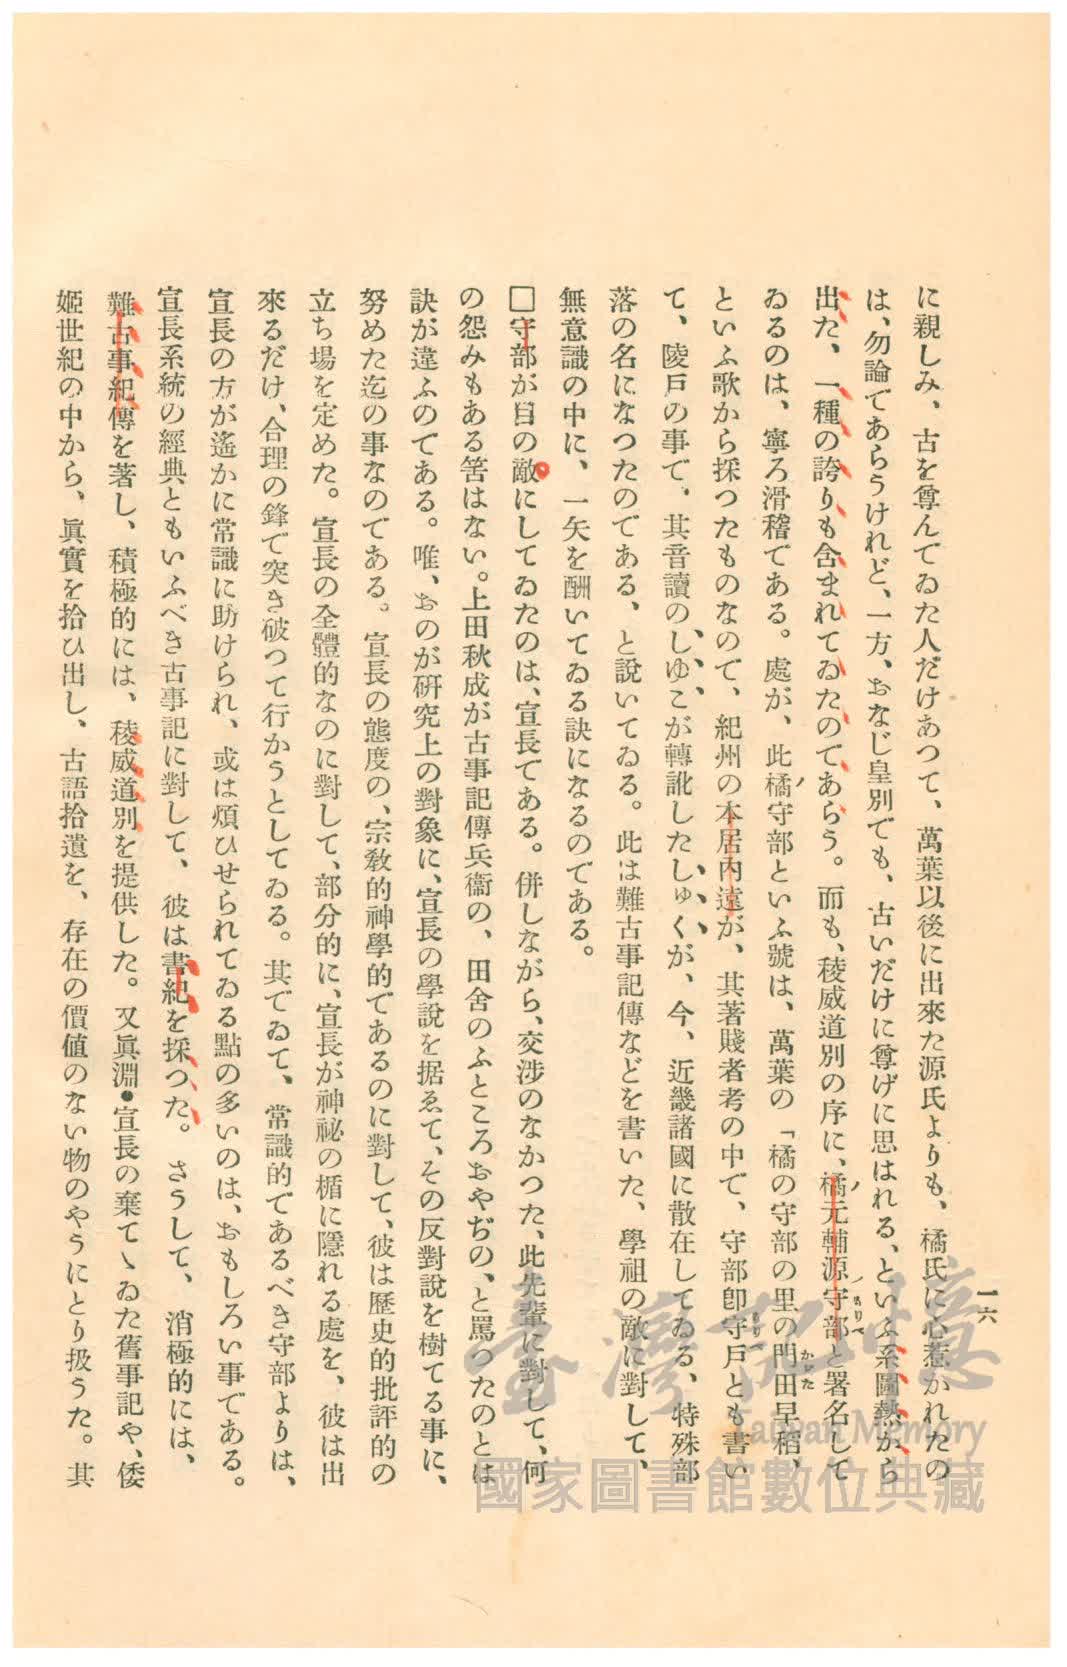 一六
に親しみ、古を尊んでゐた人だけあつて、萬葉以後に出來た源氏よりも、橘氏に心惹かれたの
は、勿論であらうけれど、一方、おなじ皇別でも、古いだけに尊げに思はれる、といふ系圖熱から
出た、一種の誇りも含まれてゐたのであらう。而も、稜威道別の序に、橘ノ元輔源ノ守部と署名して
ゐるのは、寧ろ滑稽である。處が、此橘ノ守部といふ號は、萬葉の「橘の守部の里の門田早稻」
といふ歌から採つたものなので、紀州の本居内遠が、其著賤者考の中で、守部卽守戸とも書い
て、陵戸の事で、其音讀のしゆこが轉訛したしゅくが、今、近畿諸國に散在してゐる、特殊部
落の名になつたのである、と說いてゐる。此は難古事記傳などを書いた、學祖の敵に對して、
無意識の中に、一矢を酬いてゐる訣になるのである。
□守部が目の敵にしてゐたのは、宣長である。併しながら、交渉のなかつた、此先輩に對して、何
の怨みもある筈はない。上田秋成が古事記傳兵衞の、田舍のふところおやぢの、と罵つたのとは
訣が違ふのである。唯、おのが硏究上の對象に、宣長の學說を据ゑて、その反對說を樹てる事に、
努めた迄の事なのである。宣長の態度の、宗教的神學的であるのに對して、彼は歷史的批評的の
立ち場を定めた。宣長の全體的なのに對して、部分的に、宣長が神祕の楯に隱れる處を、彼は出
來るだけ、合理の鋒で突き破つて行かうとしてゐる。其でゐて、常識的であるべき守部よりは、
宣長の方が遙かに常識に助けられ、或は煩ひせられてゐる點の多いのは、おもしろい事である。
宣長系統の經典ともいふべき古事記に對して、彼は書紀を採つた。さうして、消極的には、
難古事紀傳を著し、積極的には、稜威道別を提供した。又眞淵●宣長の棄てゝゐた舊事記や、倭
姬世紀の中から、眞實を拾ひ出し、古語拾遺を、存在の價値のない物のやうにとり扱うた。其
臺灣記憶
Taiwan Memory
國家圖書館數位典藏